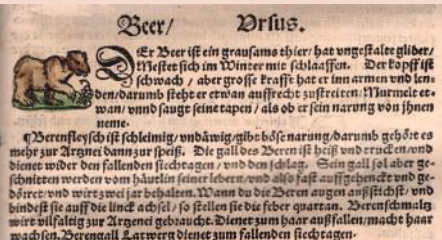 Beer/ Vrsus.
DEr Beer ist ein grausams thier/ hat vngestalte glider/
Mestet sich im Winter mit schlaaffen. Der kopff ist
schwach / aber grosse krafft hat er inn armen vnd len-
den/darumb steht er etwan auffrecht zustreiten. Murmelt et-
wan/ vnnd saugt seine tapen / als ob er sein narung von jhnen
neme.
¶Berenfleysch ist schleimig/vndäwig/gibt böse narung/darumb gehört es
mehr zur Artznei dann zur speiß. Die gall des Beren ist heiß vnd trucken/vnd
dienet wider den fallenden siechtagen / vnd den schlag. Sein gall sol aber ge-
schnitten werden vom häutlin seiner lebern/vnd also fast auffgehenckt vnd ge-
dörret/vnd wirt zwei jar behalten. Wann du die Beren augen außstichst/ vnd
bindest sie auff die linck achsel/ so stellen sie die feber quartan. Berenschmaltz
wirt vilfaltig zur Artznei gebraucht. Dienet zum haar außfallen/macht haar
wachsen. Berengall Latwern dienet zum fallenden siechtagen.